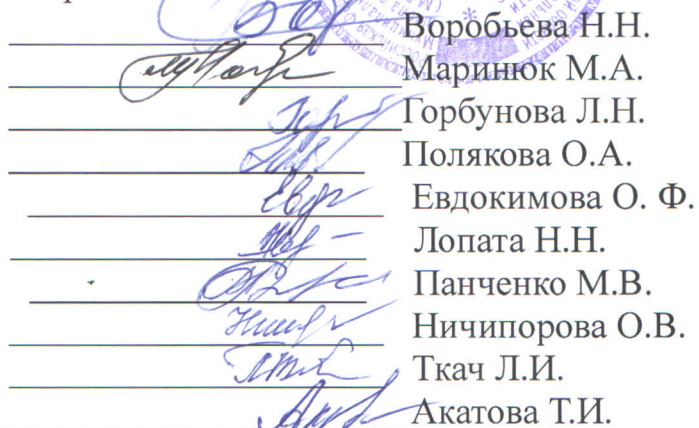 Воробьева Н.Н.
Маринюк М.А.
Горбунова Л.Н.
Полякова О.А.
Евдокимова О. Ф.
Лопата Н.Н.
Панченко М.В.
Ничипорова О.В.
Ткач Л.И.
Акатова Т.И.